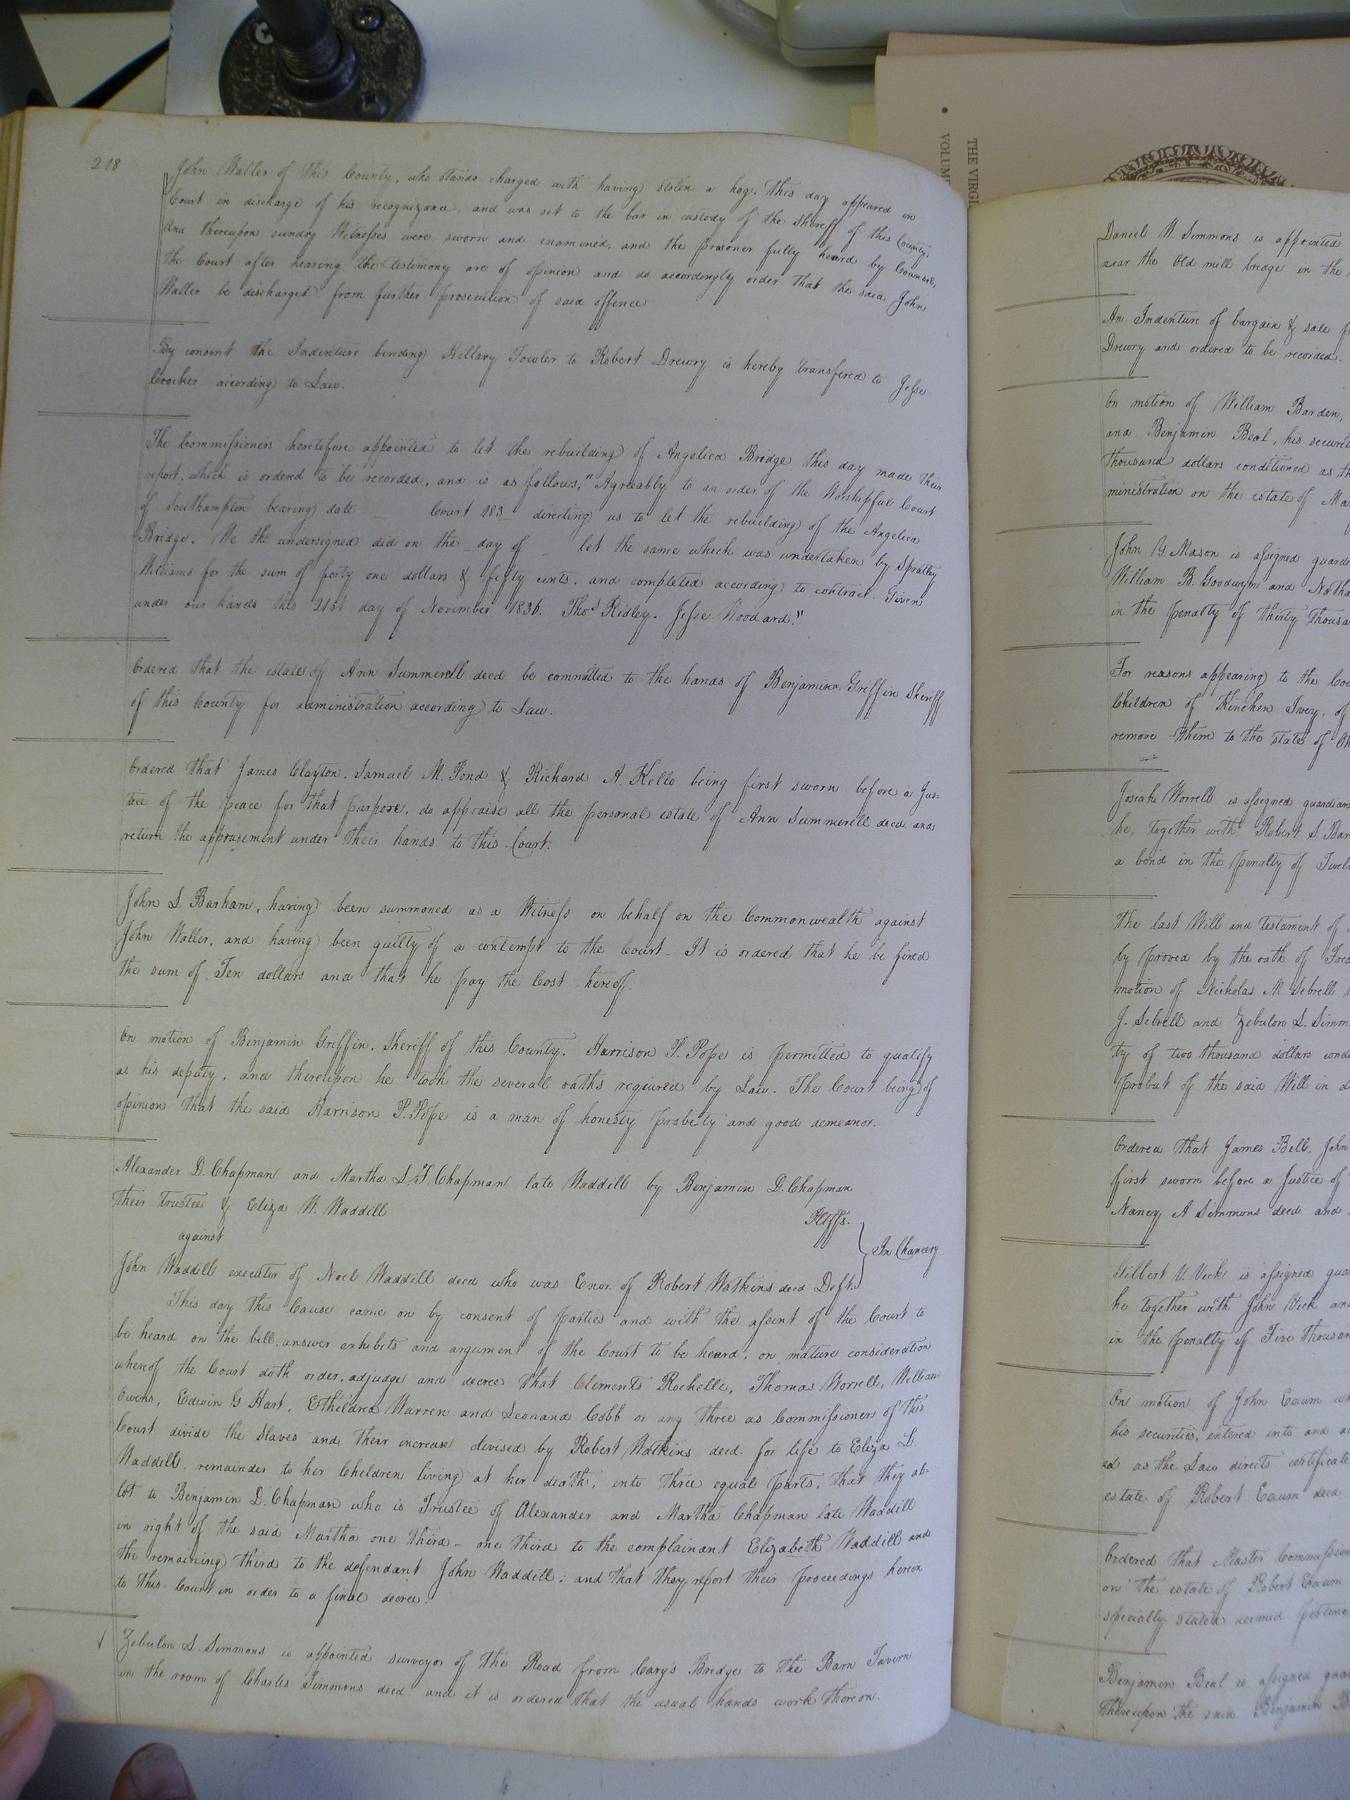 218
John Waller of this County, who stands charged with having stolen a hog. This day appeared in
Court in discharge of his recognizance, and was set to the bar in custody of the Sheriff of this County.
And thereupon sundry Witnesses were sworn and examined, and the prisoner fully heard by Counsel,
the Court after hearing the testimony are of opinion and do accordingly order that the said John
Waller be discharged from further prosecution of said offence
By consent the Indenture binding Hillary Fowler to Robert Drewry is hereby transfered to Jesse
Crocker according to Law.
The Commissioners heretofore appointed to let the rebuilding of Angelica Bridge this day made their
report, which is ordered to be recorded, and is as follows, "Agreeably to an order of the Worshipful Court
of Southampton bearing date _ Court 183_ directing us to let the rebuilding of the Angelica
Bridge. We the undersigned did on the _ day of _ let the same which was undertaken by Spratley
Williams for the sum of forty one dollars & fifty cents, and completed according to contract. Given
under our hands this 21st day of November 1836. Thos Ridley. Jesse Woodard."
Ordered that the estate of Ann Summerell decd be committed to the hands of Benjamin Griffin Sheriff
of this County for administration according to Law.
Ordered that James Clayton, Samuel M. Pond & Richard A. Kello being first sworn before a Jus-
tice of the peace for that purpose, do appraise all the personal estate of Ann Summerell decd and
return the appraisment under their hands to this Court.
John S Barham, having been summoned as a Witness on behalf on the Commonwealth against
John Waller, and having been guilty of a contempt to the Court. It is ordered that he be fined
the sum of Ten dollars and that he pay the Cost hereof.
On motion of Benjamin Griffin, Sheriff of this County. Harrison P. Pope is permitted to qualify
as his deputy, and thereupon he took the several oaths required by Law. The Court being of
opinion that the said Harrison P. Pope is a man of honesty probity and good demeanor.
Alexander D. Chapman and Martha S. T. Chapman late Waddill by Benjamin D. Chapman
their trustee & Eliza W. Waddill Pltffs.
against
In Chancery
John Waddill executor of Noel Waddill decd who was Exor. of Robert Watkins decd Deft.
This day this Cause came on by consent of parties and with the assent of the Court to
be heard on the bill, answer exhibits and argument of the Court to be heard, on mature consideration
whereof the Court doth order, adjudge and decree that Clements Rochelle, Thomas Worrell, William
Owens, Edwin G Hart, Etheldred Warren and Leonard Cobb or any three as Commissioners of this
Court divide the Slaves and their increase devised by Robert Watkins decd. for life to Eliza L.
Waddill, remainder to her Children living at her death, into three equal parts, that they al-
lot to Benjamin D. Chapman who is Trustee of Alexander and Martha Chapman late Waddill
in right of the said Martha one third - one third to the complainant Elizabeth Waddill and
the remaining third to the defendant John Waddill; and that they report their proceedings herein
to this Court in order to a final decree.
Zebulon S. Simmons is appointed surveyor of the Road from Cary's Bridge to the Barn Tavern
in the room of Charles Simmons decd. and it is ordered that the usual hands work thereon.
THE VIRGI
VOLUM
Daniel W. Simmons is appointed
near the Old mill bridge in the
An Indenture of bargain & sale
Drewry and ordered to be recorded.
On motion of William Barden,
and Benjamin Beal, his securit
thousand dollars conditioned as
ministration on the estate of
John Y. Mason is assigned guardi
William B. Goodwyn and
in the penalty of thirty thousa
For reasons appearing to the
Children of Kinchen Ivey, of
remove them to the state of
Josiah Worrell is assigned guardian
he, together with Robert S
a bond in the penalty of
The last Will and testament of
by proved by the oath of
motion of Nicholas M Sebrell
J. Sebrell and Zebulon S. Simm
ty of two thousand dollars cond
probat of the said Will in d
Ordered that James Bell, John
first sworn before a Justice of
Nancy A Simmons decd and
Gilbert V. Vick is assigned
he together with John Vick
in the penalty of Five thousan
On motion of John
his securities, entered into and
ed as the Law directs certificate
estate of Robert decd
Ordered that Master Commission
on the estate of Robert
specially stated deemed pertinen
Benjamin Beal is assigned gua
thereupon the said Benjamin B